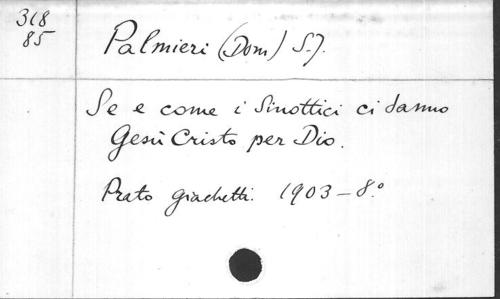 318
85
Palmieri (Dom) S.J.
Se e come i Sinottici ci danno
Gesù Cristo per Dio.
Prato Giachetti. 1903 - 8.º